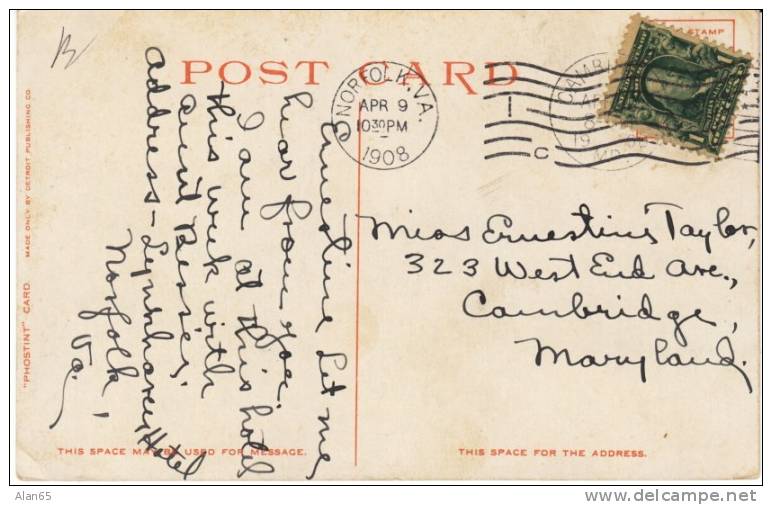 POST CARD
STAMP
NORFOLK, VA.
APR 9
10 30 PM
1908
C
CAMBRI
MD.
Ernestine Let me
hear from you.
I am at this hotel
this week with
aunt Bessie.
address - Lynnhaven Hotel
Norfolk,
Va.
Miss Ernestine Taylor,
323 West End Ave.,
Cambridge,
Maryland.
THIS SPACE MAY BE USED FOR MESSAGE.
THIS SPACE FOR THE ADDRESS.
"PHOSTINT" CARD. MADE ONLY BY DETROIT PUBLISHING CO.
Alan65
http://www.delcampe.net